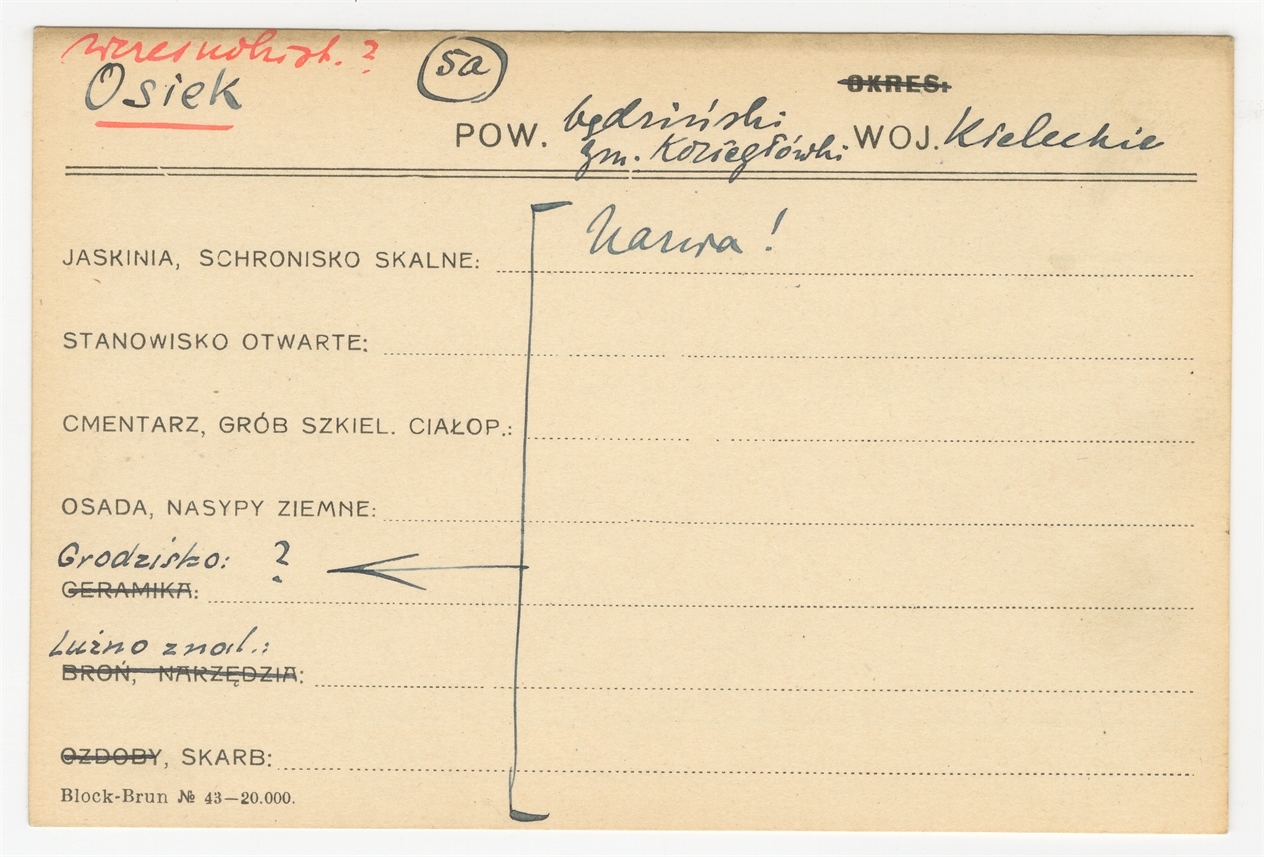 wczesnohist. ?
Osiek
5a
OKRES:
POW. będziński WOJ. Kieleckie
gm. Koziegłówki
JASKINIA, SCHRONISKO SKALNE:
Nazwa!
STANOWISKO OTWARTE:
CMENTARZ, GRÓB SZKIEL. CIAŁOP.:
OSADA, NASYPY ZIEMNE:
Grodzisko: ?
CERAMIKA:
Luźno znal.:
BROŃ, NARZĘDZIA:
OZDOBY, SKARB:
Block-Brun № 43—20.000.